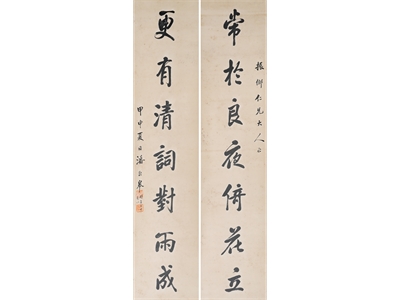 常於良夜倚花立
振卿仁兄大人
更有清詞對雨成
甲申夏日潘